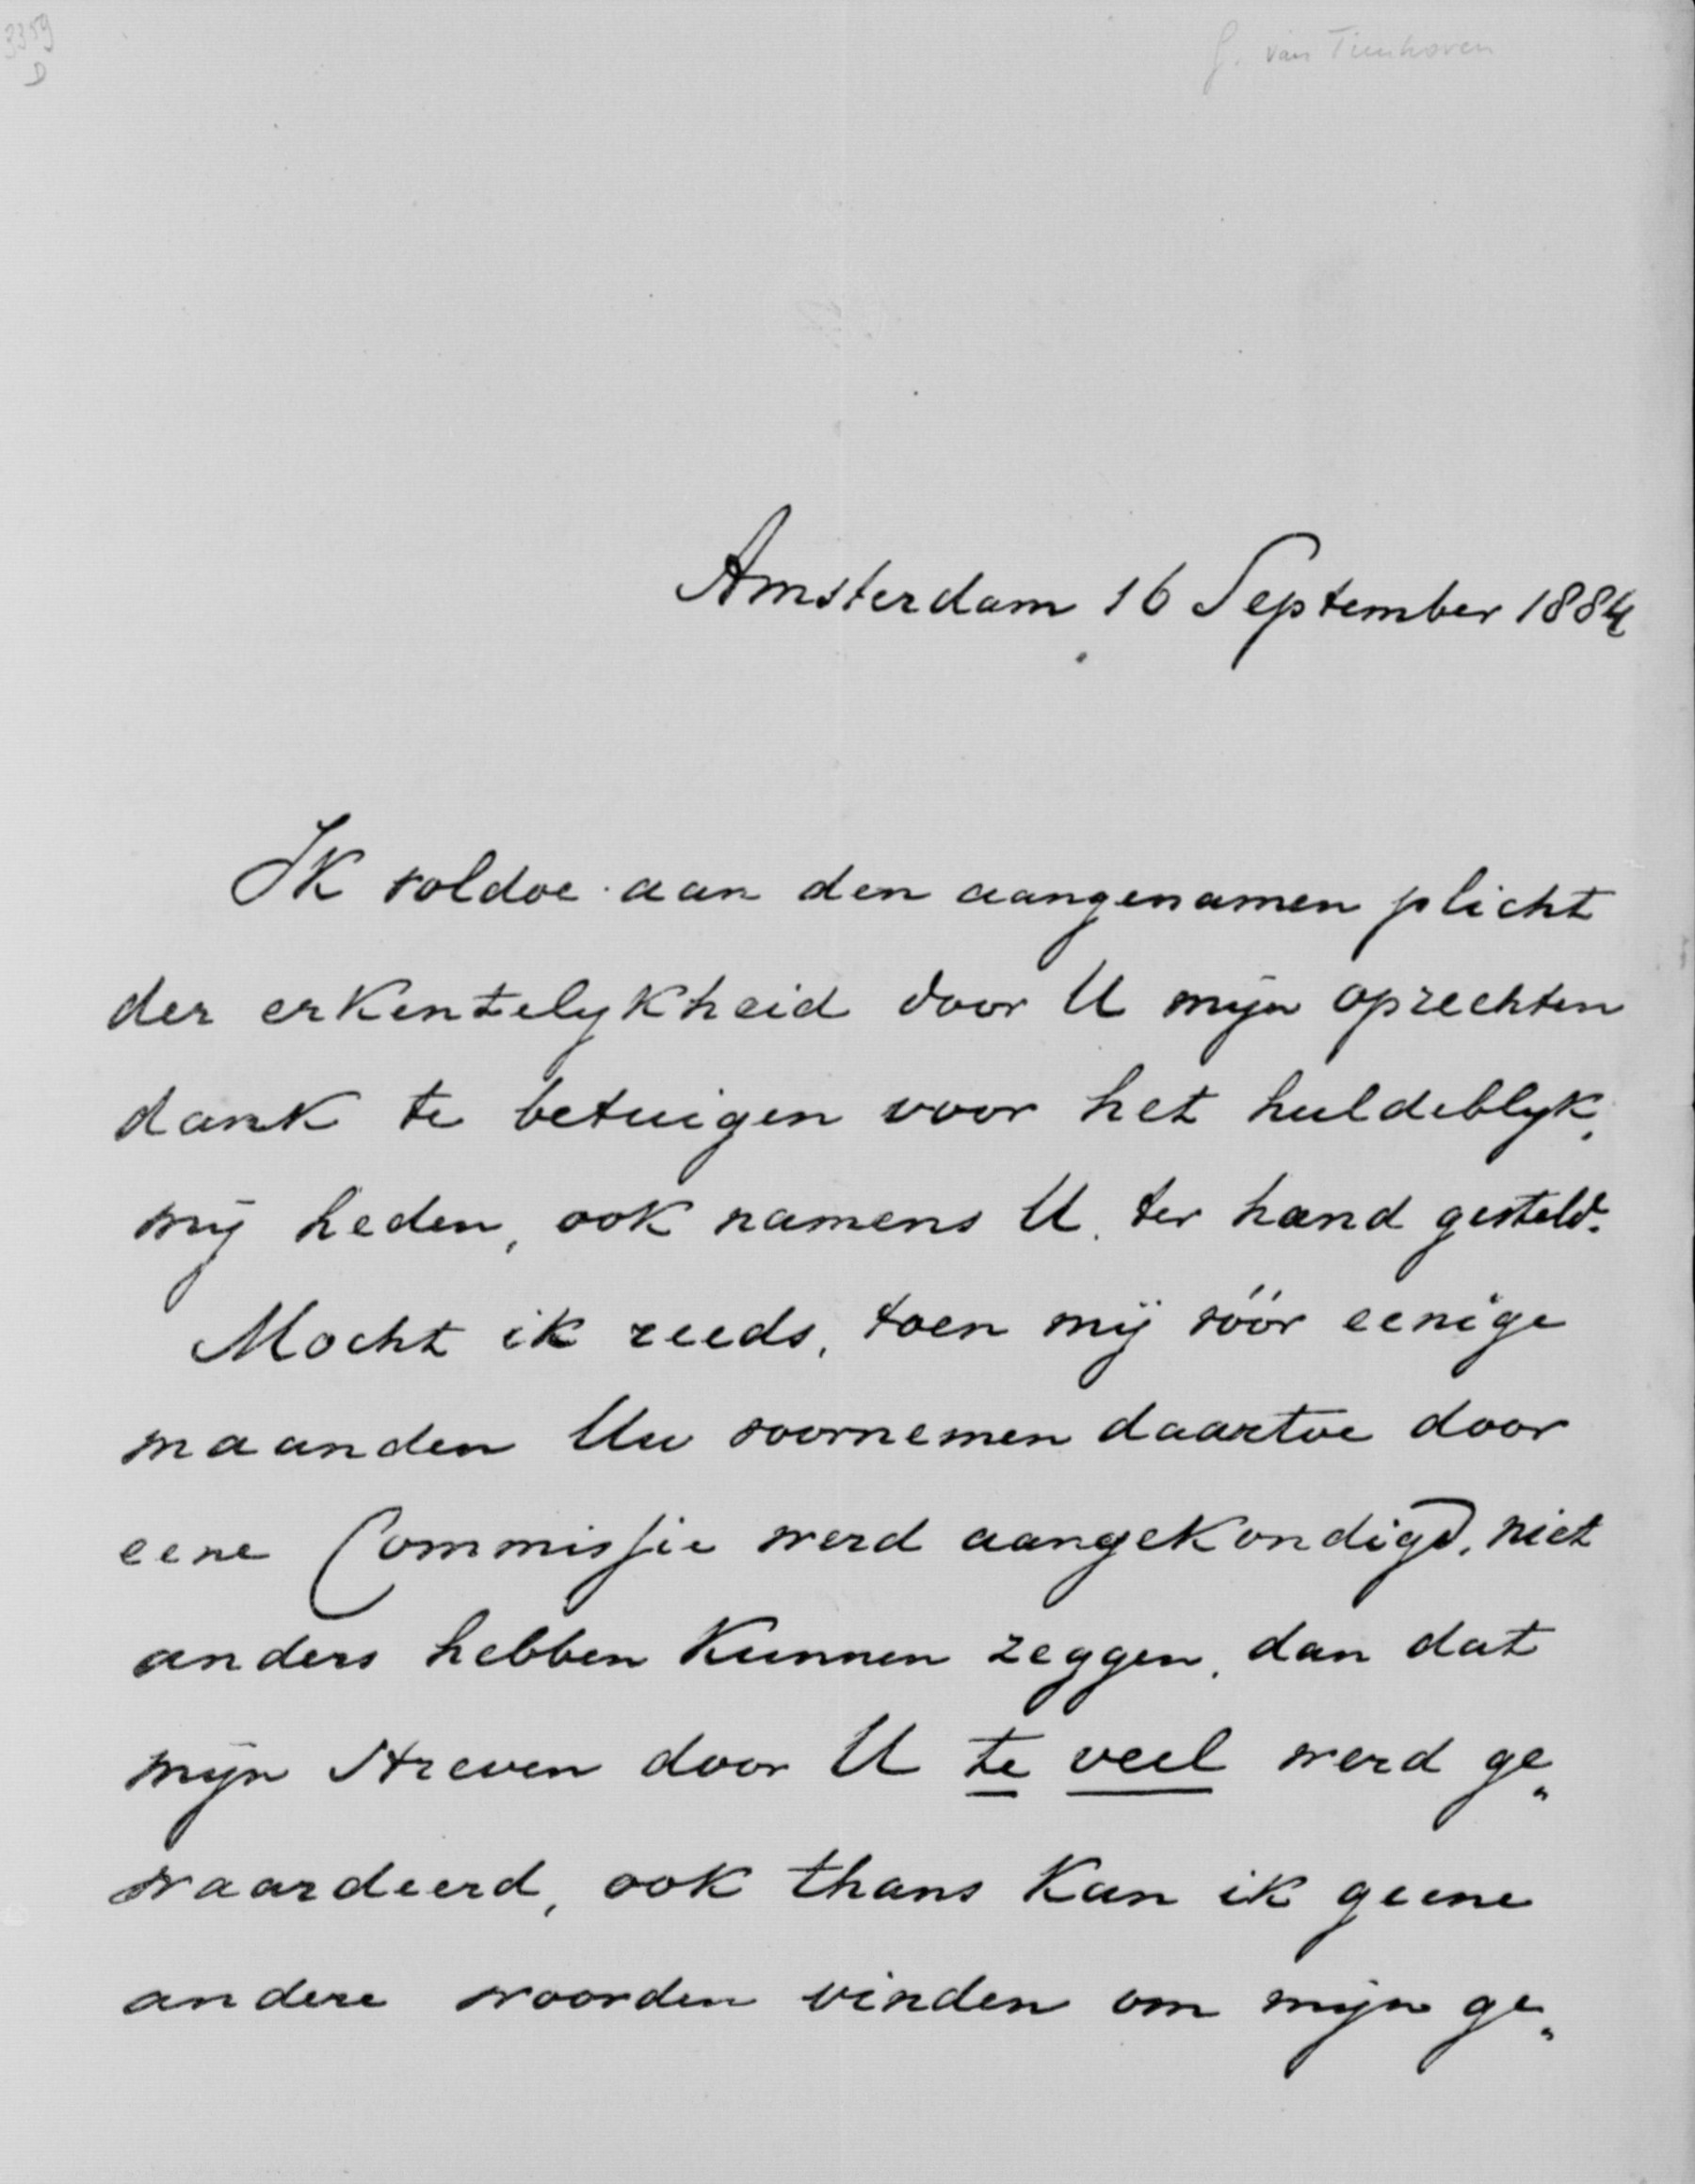 3359
D
G. van Tienhoven
Amsterdam 16 September 1884
Ik voldoe aan den aangenamen plicht
der erkentelykheid door U mijn oprechten
dank te betuigen voor het huldeblyk,
mij heden, ook namens U, ter hand gesteld.
Mocht ik reeds, toen mij vóór eenige
maanden Uw voornemen daartoe door
eene Commissie werd aangekondigd, niet
anders hebben kunnen zeggen, dan dat
mijn streven door U te veel werd ge„
waardeerd, ook thans kan ik geene
andere woorden vinden om mijn ge„